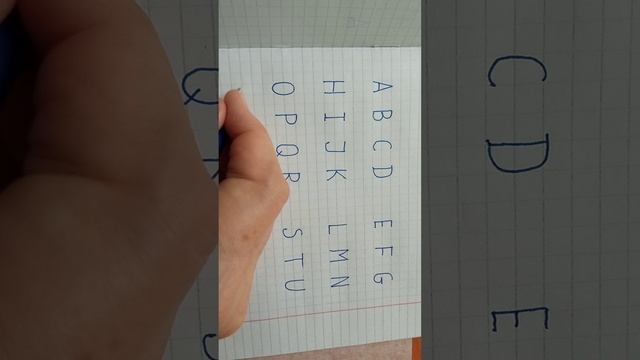 A B C D E F G
H I J K L M N
O P Q R S T U